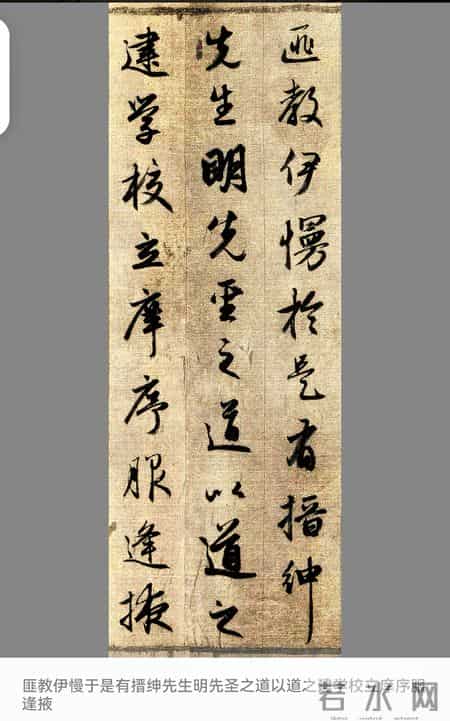 匪教伊慢於是有搢紳
先生明先聖之道以道之
建学校立庠序服逢掖
匪教伊慢于是有搢绅先生明先圣之道以道之建学校立庠序服
逢掖
若水网